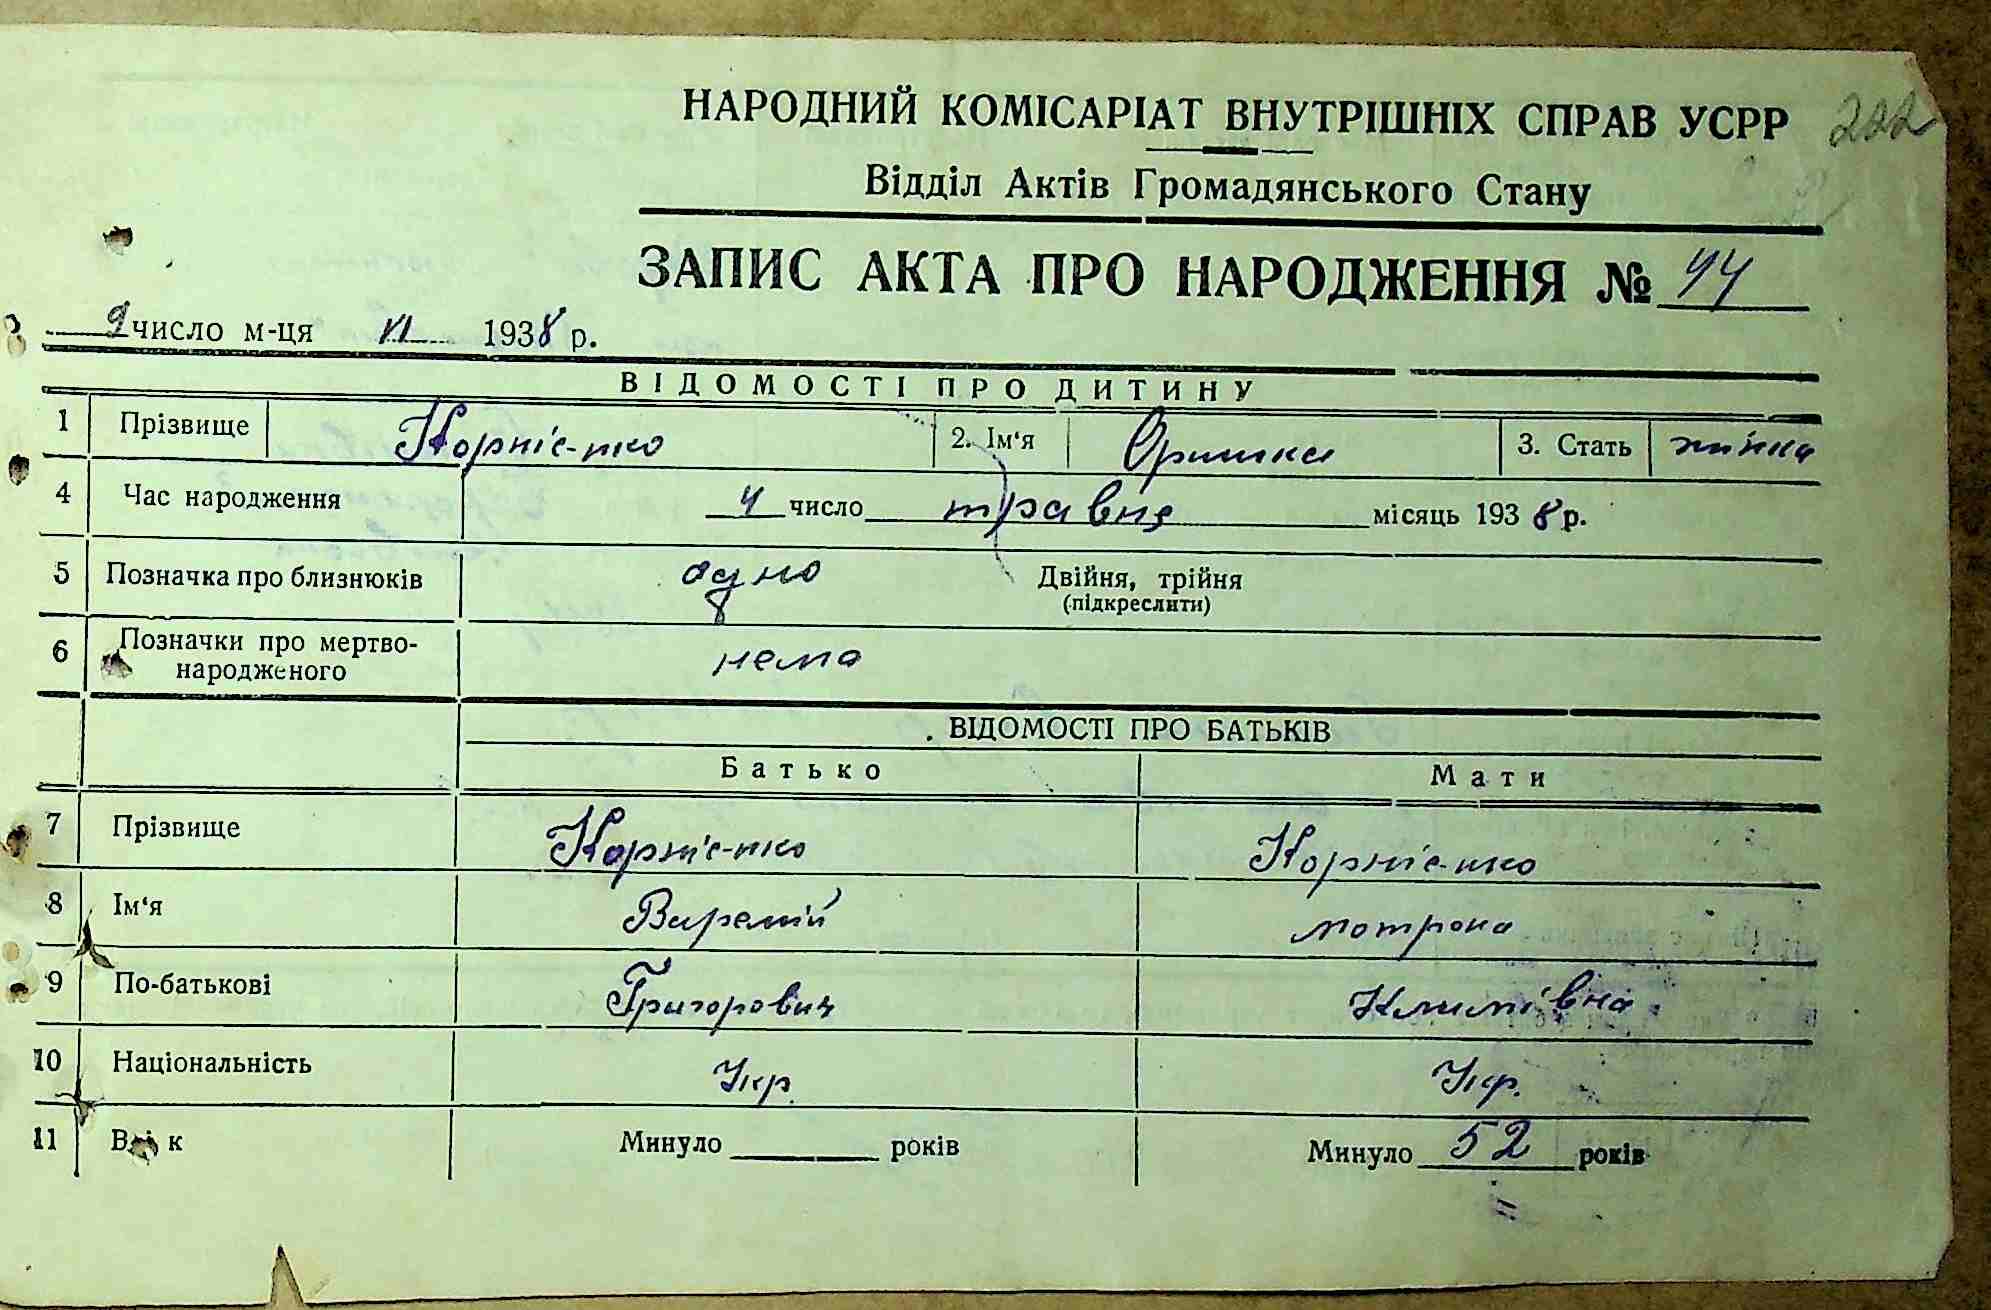 НАРОДНИЙ КОМІСАРІАТ ВНУТРІШНІХ СПРАВ УСРР 222
Відділ Актів Громадянського Стану
ЗАПИС АКТА ПРО НАРОДЖЕННЯ № 44
9 число м-ця VI 1938 р.
ВІДОМОСТІ ПРО ДИТИНУ
1 Прізвище Корнієнко 2. Ім'я Оришка 3. Стать жінка
4 Час народження 4 число травня місяць 1938 р.
5 Позначка про близнюків одно Двійня, трійня
(підкреслити)
6 Позначки про мертво-
народженого нема
ВІДОМОСТІ ПРО БАТЬКІВ
Батько Мати
7 Прізвище Корнієнко Корнієнко
8 Ім'я мотрона
9 По-батькові Григорович Климівна
10 Національність Укр. Укр.
11 Вік Минуло років Минуло 52 років